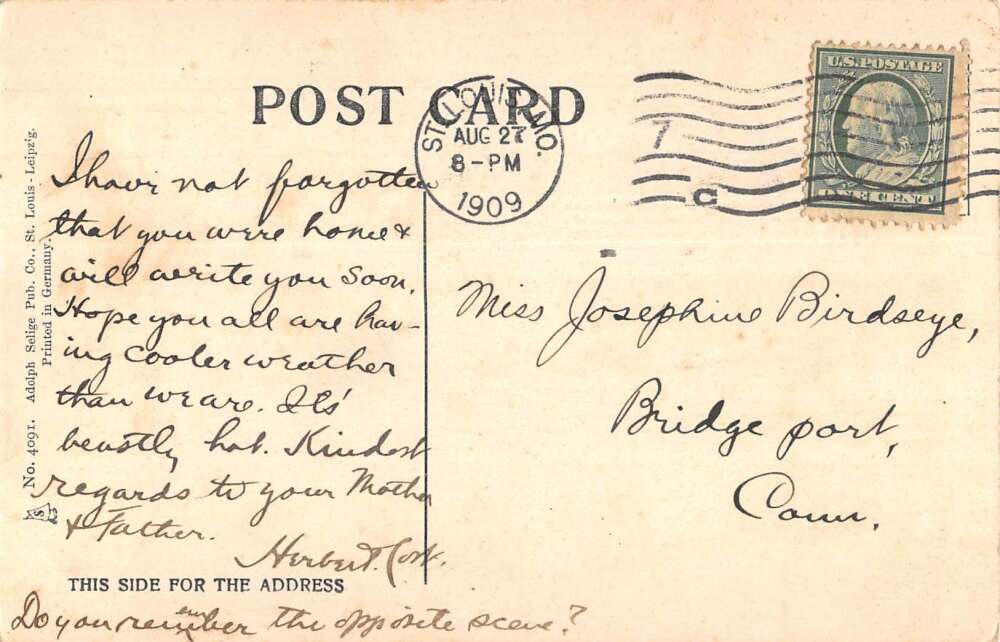 POST CARD
ST. LOUIS, MO.
AUG 27
8-PM
1909
7
C
U.S. POSTAGE
ONE CENT
I have not forgotten
that you were home &
will write you soon.
Hope you all are hav-
ing cooler weather
than we are. It's
beastly hot. Kindest
regards to your Mother
& Father.
Herbert
Do you remember the opposite scene?
Miss Josephine Birdseye,
Bridgeport,
Conn.
THIS SIDE FOR THE ADDRESS
No. 4091. Adolph Selige Pub. Co., St. Louis - Leipzig.
Printed in Germany.
S